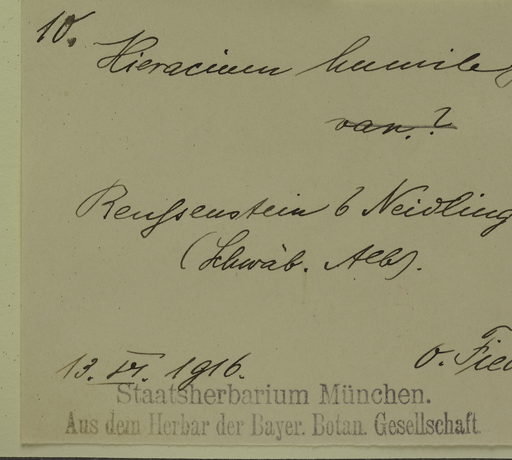 10.
Hieracium humile
var. ?
Reußenstein b Neidling
(Schwäb. Alb).
13. VI. 1916.
O. Fie
Staatsherbarium München.
Aus dem Herbar der Bayer. Botan. Gesellschaft.